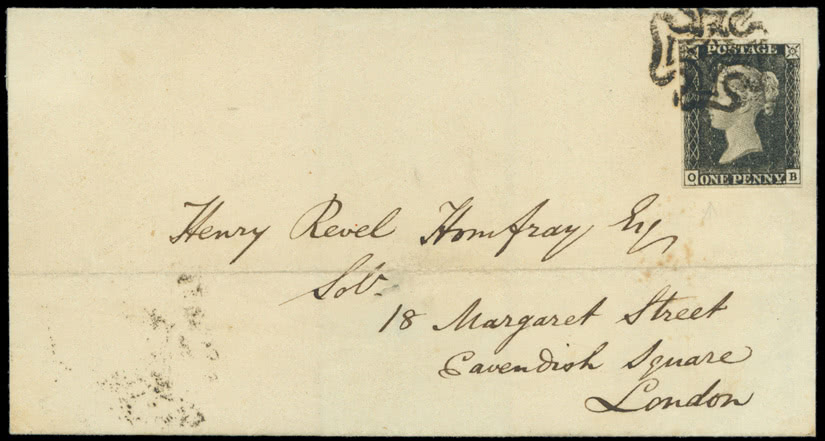 POSTAGE
O B
ONE PENNY
Henry Revel Homfray Esq
Solr.
18 Margaret Street
Cavendish Square
London